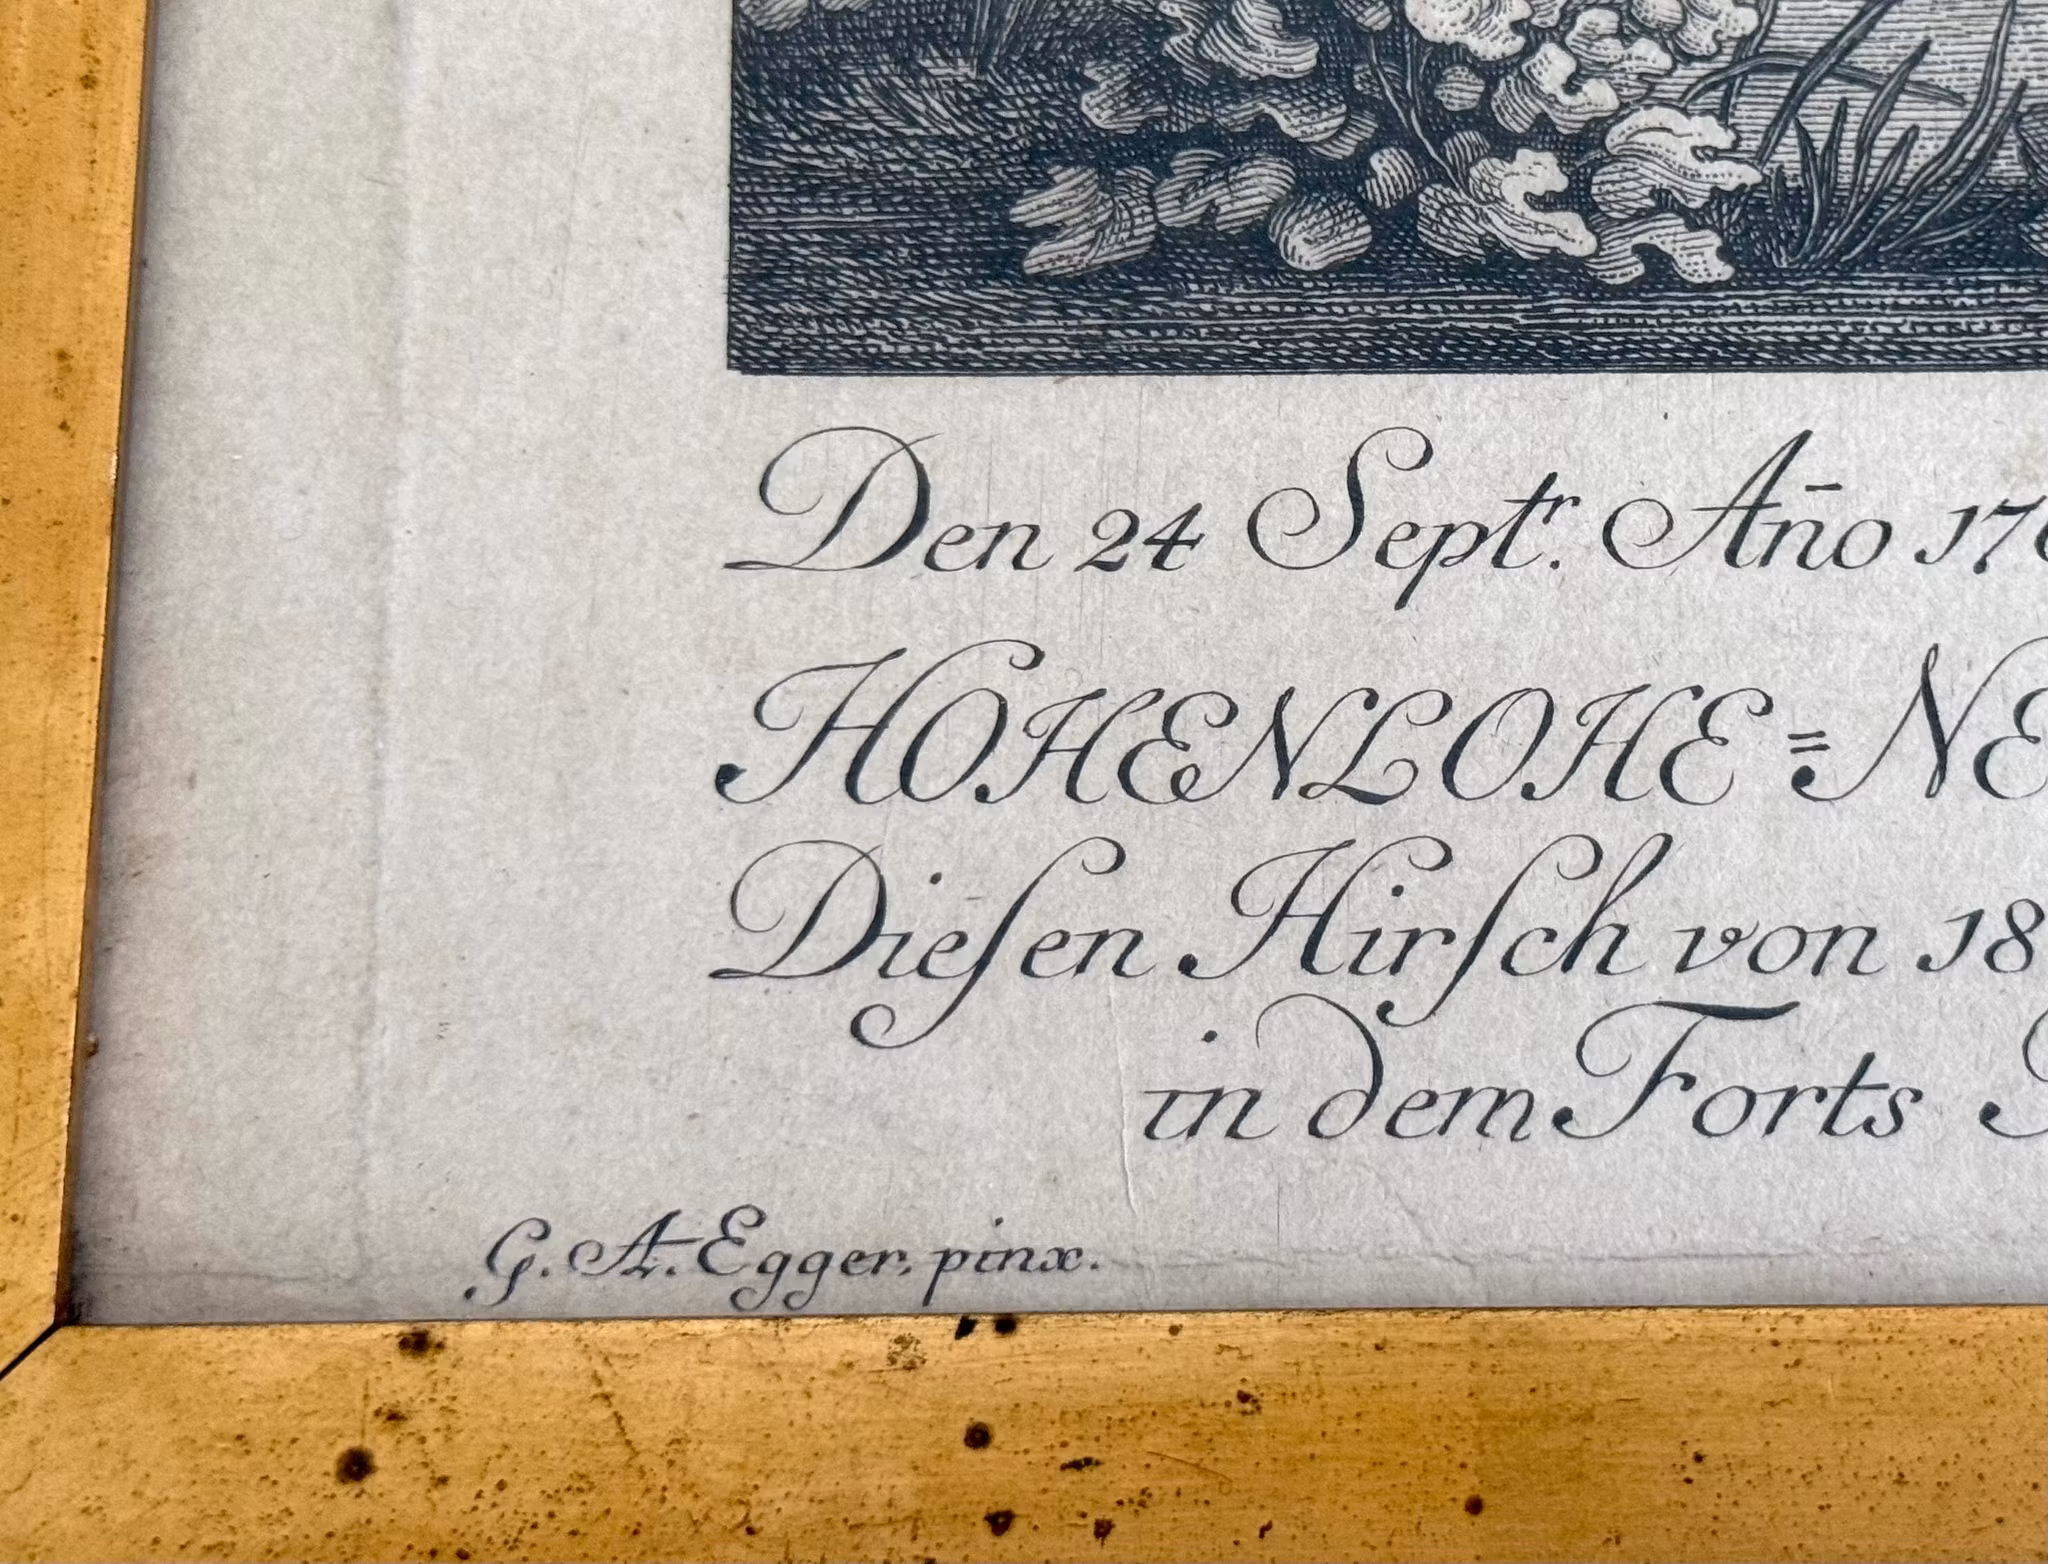 Den 24 Septr. Año 17
HOHENLOHE = NE
Dieſen Hirſch von 18
in dem Forts
G. A. Egger. pinx.